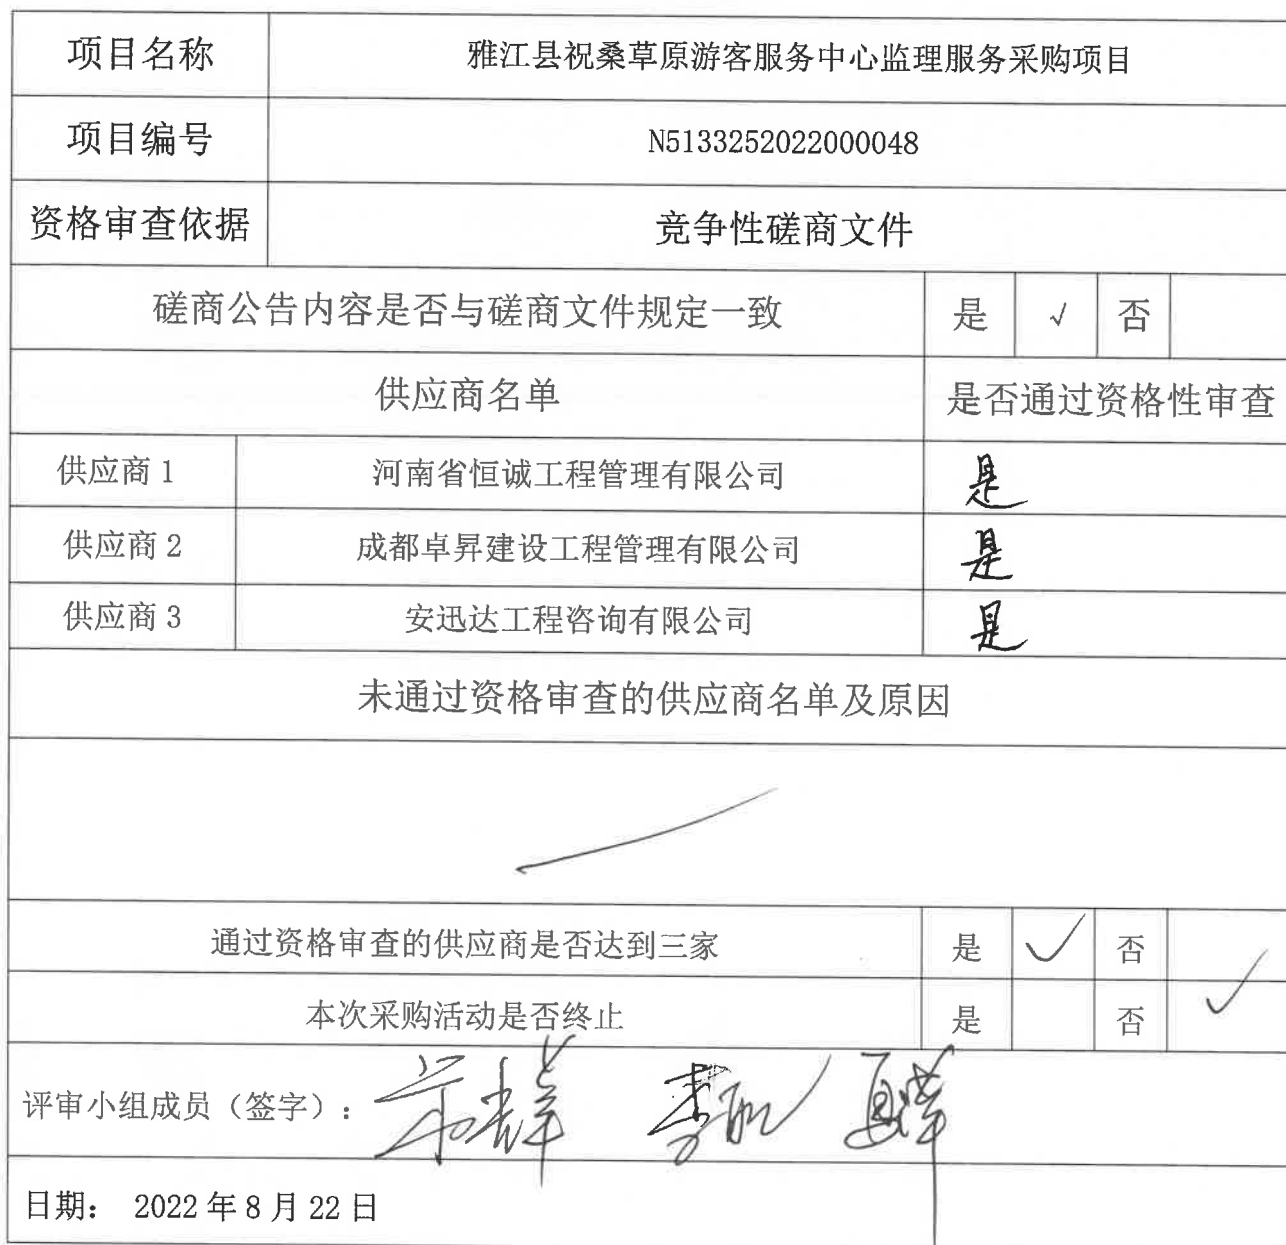 项目名称 雅江县祝桑草原游客服务中心监理服务采购项目
项目编号 N5133252022000048
资格审查依据 竞争性磋商文件
磋商公告内容是否与磋商文件规定一致 是 √ 否
供应商名单 是否通过资格性审查
供应商1 河南省恒诚工程管理有限公司 是
供应商2 成都卓昇建设工程管理有限公司 是
供应商3 安迅达工程咨询有限公司 是
未通过资格审查的供应商名单及原因
通过资格审查的供应商是否达到三家 是 √ 否
本次采购活动是否终止 是 否 √
评审小组成员（签字）：
日期： 2022年8月22日